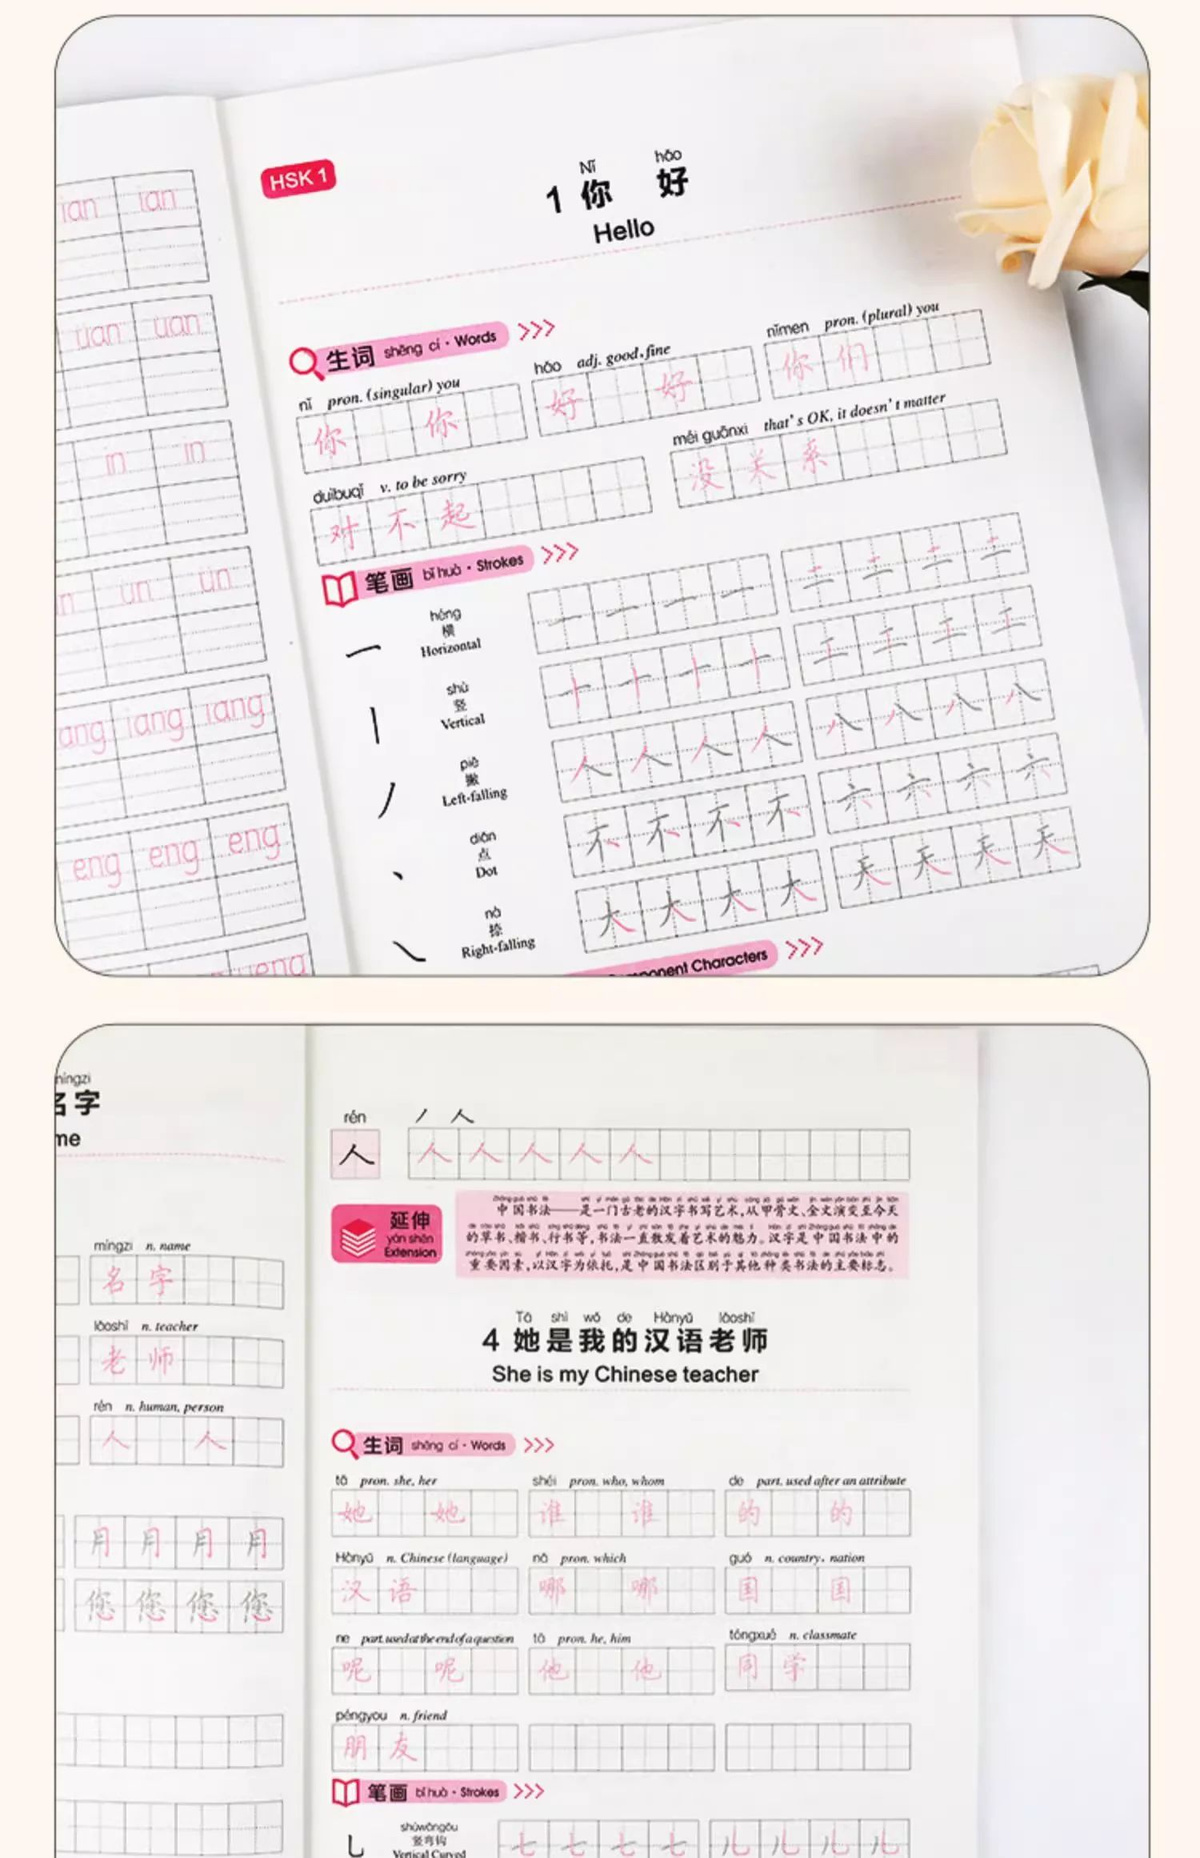 ian ian
uan uan
in in
ün ün
ang iang iang
eng eng eng
ueng
HSK 1
Nǐ hǎo
1 你 好
Hello
生词 shēng cí · Words >>>
nǐ pron. (singular) you
你 你
hǎo adj. good, fine
好 好
nǐmen pron. (plural) you
你 们
duìbuqǐ v. to be sorry
对 不 起
méi guānxi that's OK, it doesn't matter
没 关 系
笔画 bǐ huà · Strokes >>>
héng
横
Horizontal
一 一 一 一 二 二 二 二
shù
竖
Vertical
十 十 十 十 工 工 工 工
piě
撇
Left-falling
人 人 人 人 八 八 八 八
diǎn
点
Dot
不 不 不 不 六 六 六 六
nà
捺
Right-falling
大 大 大 大 天 天 天 天
Characters >>>
míngzi
名字
me
míngzi n. name
名 字
lǎoshī n. teacher
老 师
rén n. human, person
人 人
月 月 月 月
您 您 您 您
rén
人 人 人 人 人 人
延伸
yán shēn
Extension
中国书法——是一门古老的汉字书写艺术,从甲骨文、金文演变至今天
的草书、楷书、行书等,书法一直散发着艺术的魅力。汉字是中国书法中的
重要因素,以汉字为依托,是中国书法区别于其他种类书法的主要标志。
Tā shì wǒ de Hànyǔ lǎoshī
4 她是我的汉语老师
She is my Chinese teacher
生词 shēng cí · Words >>>
tā pron. she, her
她 她
shéi pron. who, whom
谁 谁
de part. used after an attribute
的 的
Hànyǔ n. Chinese (language)
汉 语
nǎ pron. which
哪 哪
guó n. country, nation
国 国
ne part. used at the end of a question
呢 呢
tā pron. he, him
他 他
tóngxué n. classmate
同 学
péngyou n. friend
朋 友
笔画 bǐ huà · Strokes >>>
shùwāngōu
竖弯钩
Vertical Curved
七 七 七 七 儿 儿 儿 儿